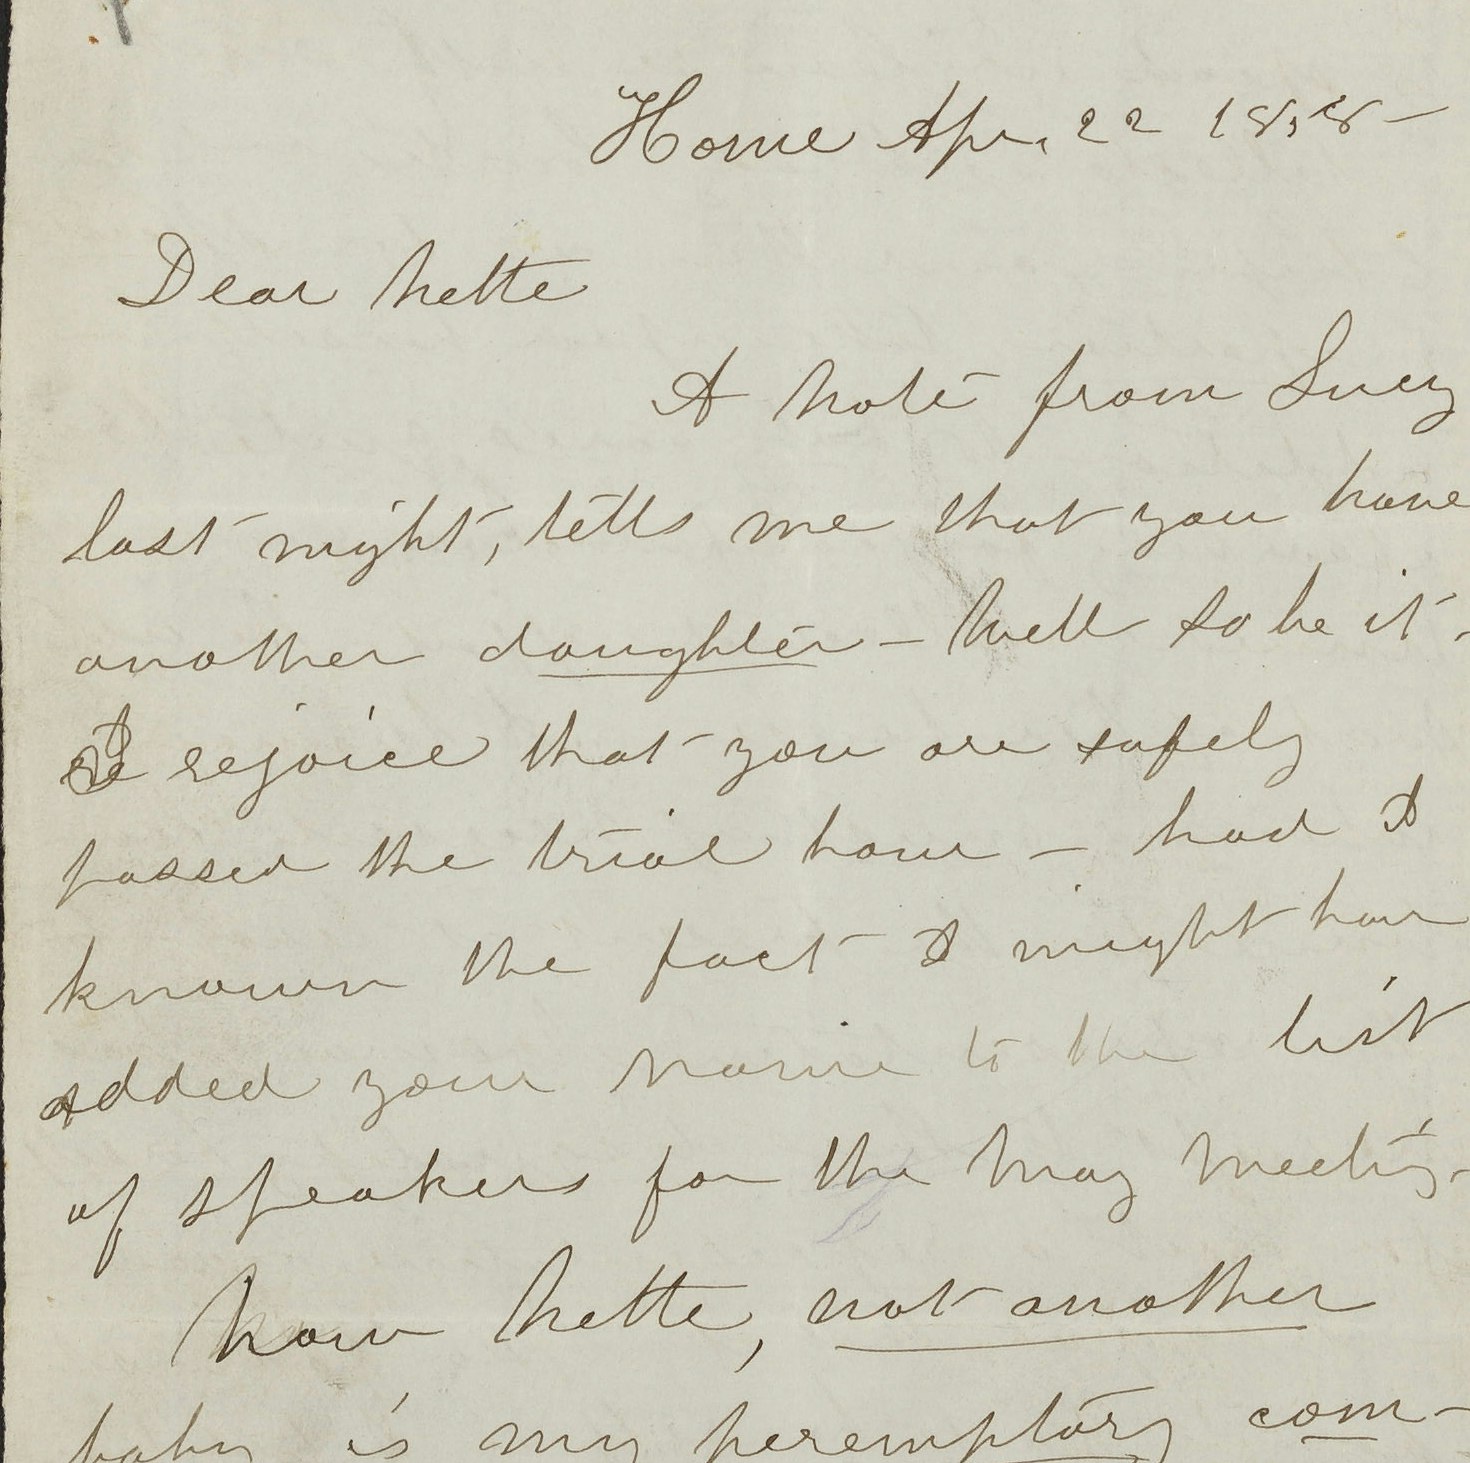 Home Apr. 22 1858 –
Dear Nette
A note from Lucy
last night, tells me that you have
another daughter – Well so be it –
I rejoice that you are safely
passed the trial hour – had I
known the fact I might have
added your name to the list
of speakers for the May Meeting –
Now Nette, not another
baby is my peremptory com-